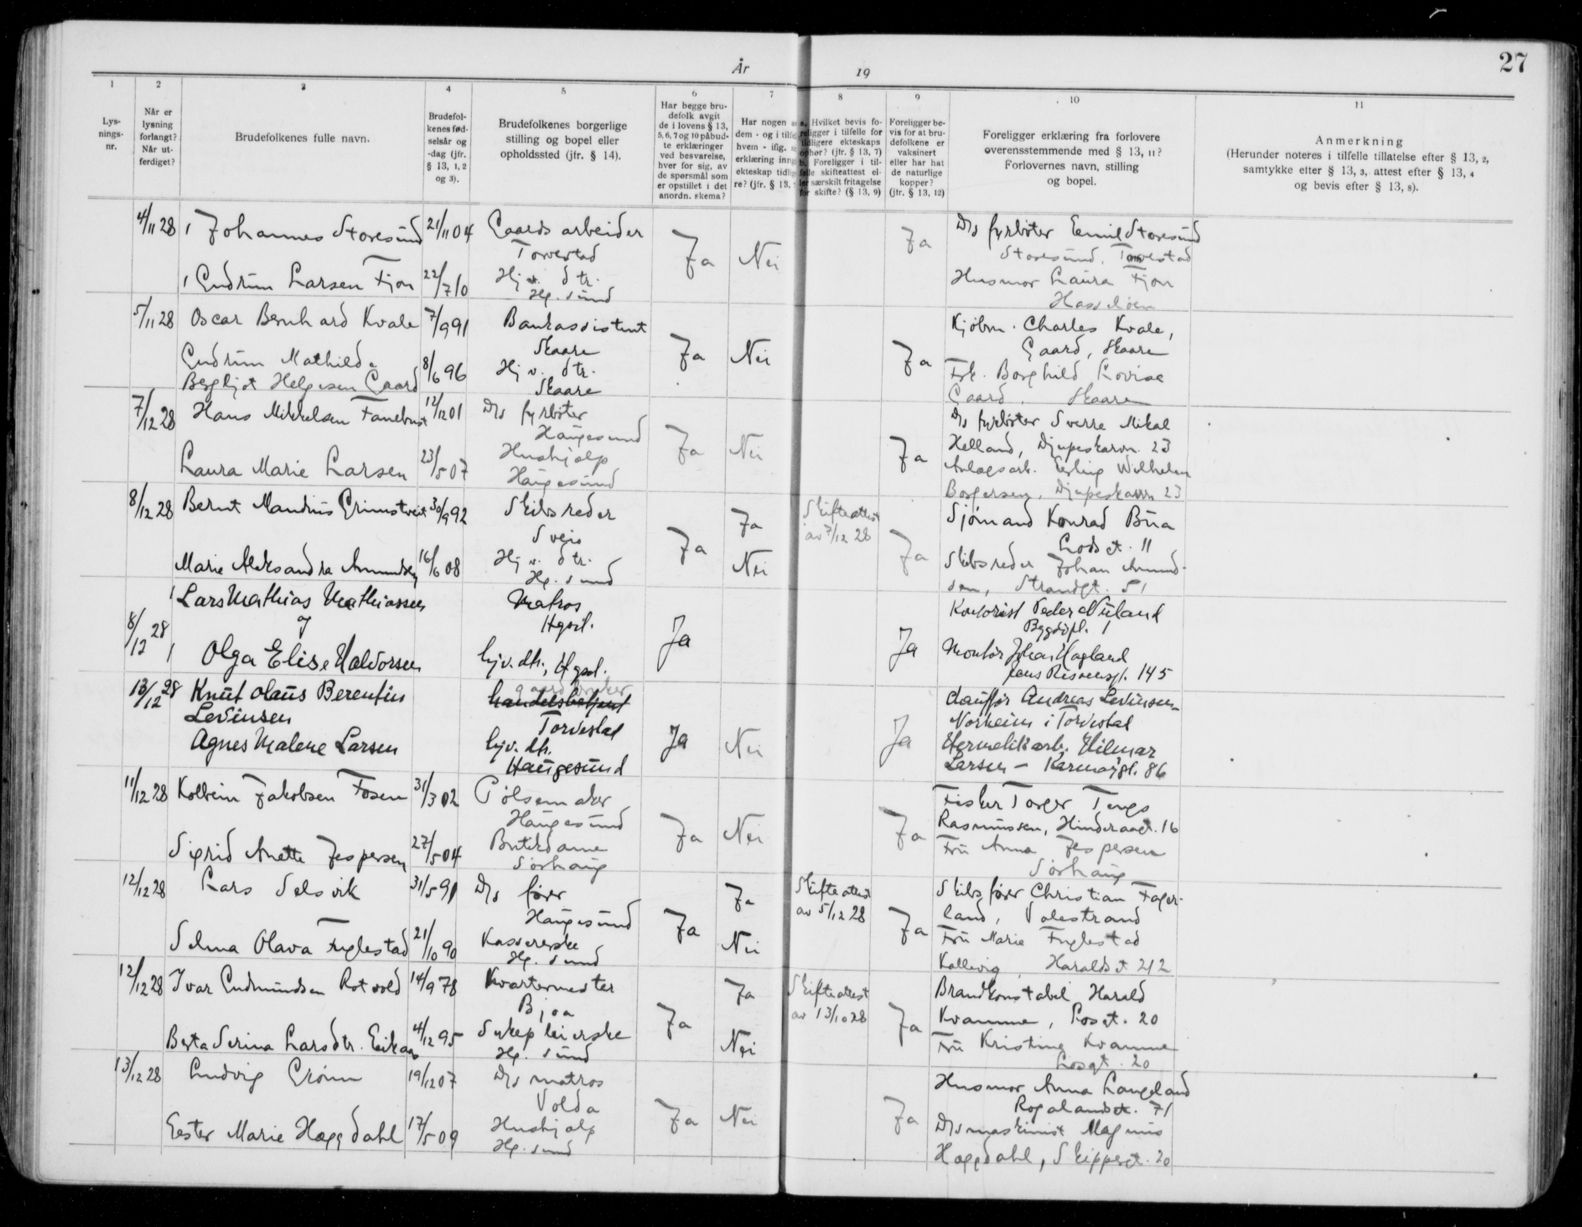 27
År 19
1 2 3 4 5 6 7 8 9 10 11
Lys-
nings-
nr.
Når er
lysning
forlangt?
Når ut-
ferdiget?
Brudefolkenes fulle navn.
Brudefol-
kenes fød-
selsår og
-dag (jfr.
§ 13, 1, 2
og 3).
Brudefolkenes borgerlige
stilling og bopel eller
opholdssted (jfr. § 14).
Har begge bru-
defolk avgit
de i lovens § 13,
5, 6, 7 og 10 påbud-
te erklæringer
ved besvarelse,
hver for sig, av
de spørsmål som
er opstillet i det
anordn. skema?
Har nogen
dem - og i tilfe
hvem - ifig.
erklæring inng
ekteskap tidlig
re? (jfr. § 13,
Hvilket bevis fo-
religger i tilfelle for
tidligere ekteskaps
ophør? (jfr. § 13, 7)
Foreligger i til-
felle skifteattest el-
ler særskilt fritagelse
for skifte? (§ 13, 9)
Foreligger be-
vis for at bru-
defolkene er
vaksinert
eller har hat
de naturlige
kopper?
(jfr. § 13, 12)
Foreligger erklæring fra forlovere
overensstemmende med § 13, 11?
Forlovernes navn, stilling
og bopel.
Anmerkning
(Herunder noteres i tilfelle tillatelse efter § 13, 2,
samtykke etter § 13, 3, attest efter § 13, 4
og bevis efter § 13, 8).
4/11 28 Johannes Storesund 21/11 04 Gaards arbeider Ja Nei Ja D/s fyrbøter Emil Storesund
Torvestad Storesund, Torvestad
Gudrun Larsen Fjon 22/7 10 Hj. v. dtr. Husmor Laura Fjon
Hg. sund
5/11 28 Oscar Bernhard Kvale 7/9 91 Bankassistent Ja Nei Ja Kjøbm. Charles Kvale,
Skaare Gaard, Skaare
Gudrun Mathilde 8/6 96 Hj v. dtr. Frk. Borghild Lovise
Bergljot Helgesen Gaard Skaare Gaard. Skaare
7/12 28 Hans Mikkelsen 12/12 01 D/s fyrbøter Ja Nei Ja D/s fyrbøter Sverre Mikal
Haugesund Helland, Djupaskarvn. 23
Laura Marie Larsen 23/5 07 Hushjælp Anlegsarb. Erling Wilhelm
Haugesund Borgersen, Djupeskarvn 23
8/12 28 Bernt Mandius Grimstveit 30/9 92 Skibsreder Ja Ja Skifteattest av 7/12 28 Ja Sjømand Konrad Bua
Sveio Lodsgt. 11
Marie Aleksandra Amundsen 16/6 08 Hj v. dtr. Nei Skibsreder Johan Amund-
Hg. sund sen, Strandgt. 51
8/12 28 Lars Mathias Mathiassen Matros Ja Ja Kontorist Peder
og Hgsd. Byggdpl. 1
Olga Elise Halvorsen hjv. dtr., Hgsd. Montør Johan Hagland
145
13/12 28 Knut Olaus Berentin gaardbruker Ja Nei Ja Chauffør Andreas Levinsen
Levinsen handelsbetjent Torvestad Norheim i Torvestad
Agnes Malene Larsen hjv. dtr. Hermetikarb. Hilmar
Haugesund Larsen - Karmøygt. 86
11/12 28 Kolbein Jakobsen Fosen 31/3 02 Pølsemaker Ja Nei Ja Fisker Torger Tengs
Haugesund Rasmussen, Hinderaagt. 16
Sigrid Anette Jespersen 27/5 04 Butikdame Fru Anna Jespersen
Sørhaug Sørhaug
12/12 28 Lars Selsvik 31/5 91 D/s fører Ja Ja Skifteattest av 5/12 28 Ja Skibsfører Christian Fager-
Haugesund land, Valestrand
Selma Olava Fuglestad 21/10 90 Kassererske Nei Fru Marie Fuglestad
Hg. sund Kallevig, Haraldsgt 212
12/12 28 Ivar Gudmundsen Rotvold 14/9 78 Kvartermester Ja Ja Skifteattest av 13/10 28 Ja Brandkonstabel Harald
Bjoa Kvamme, Losgt. 20
Berta Serina Larsdtr. 4/12 95 Sykepleierske Nei Fru Kristine Kvamme
Hg. sund Losgt. 20
13/12 28 Ludvig Grønn 19/12 07 D/s matros Ja Nei Ja Husmor Anna Langeland
Volda Rogalandsgt. 71
Ester Marie Haggdahl 17/5 09 Hushjælp D/s maskinist Magnus
Hg. sund Haggdahl, Skippergt. 20